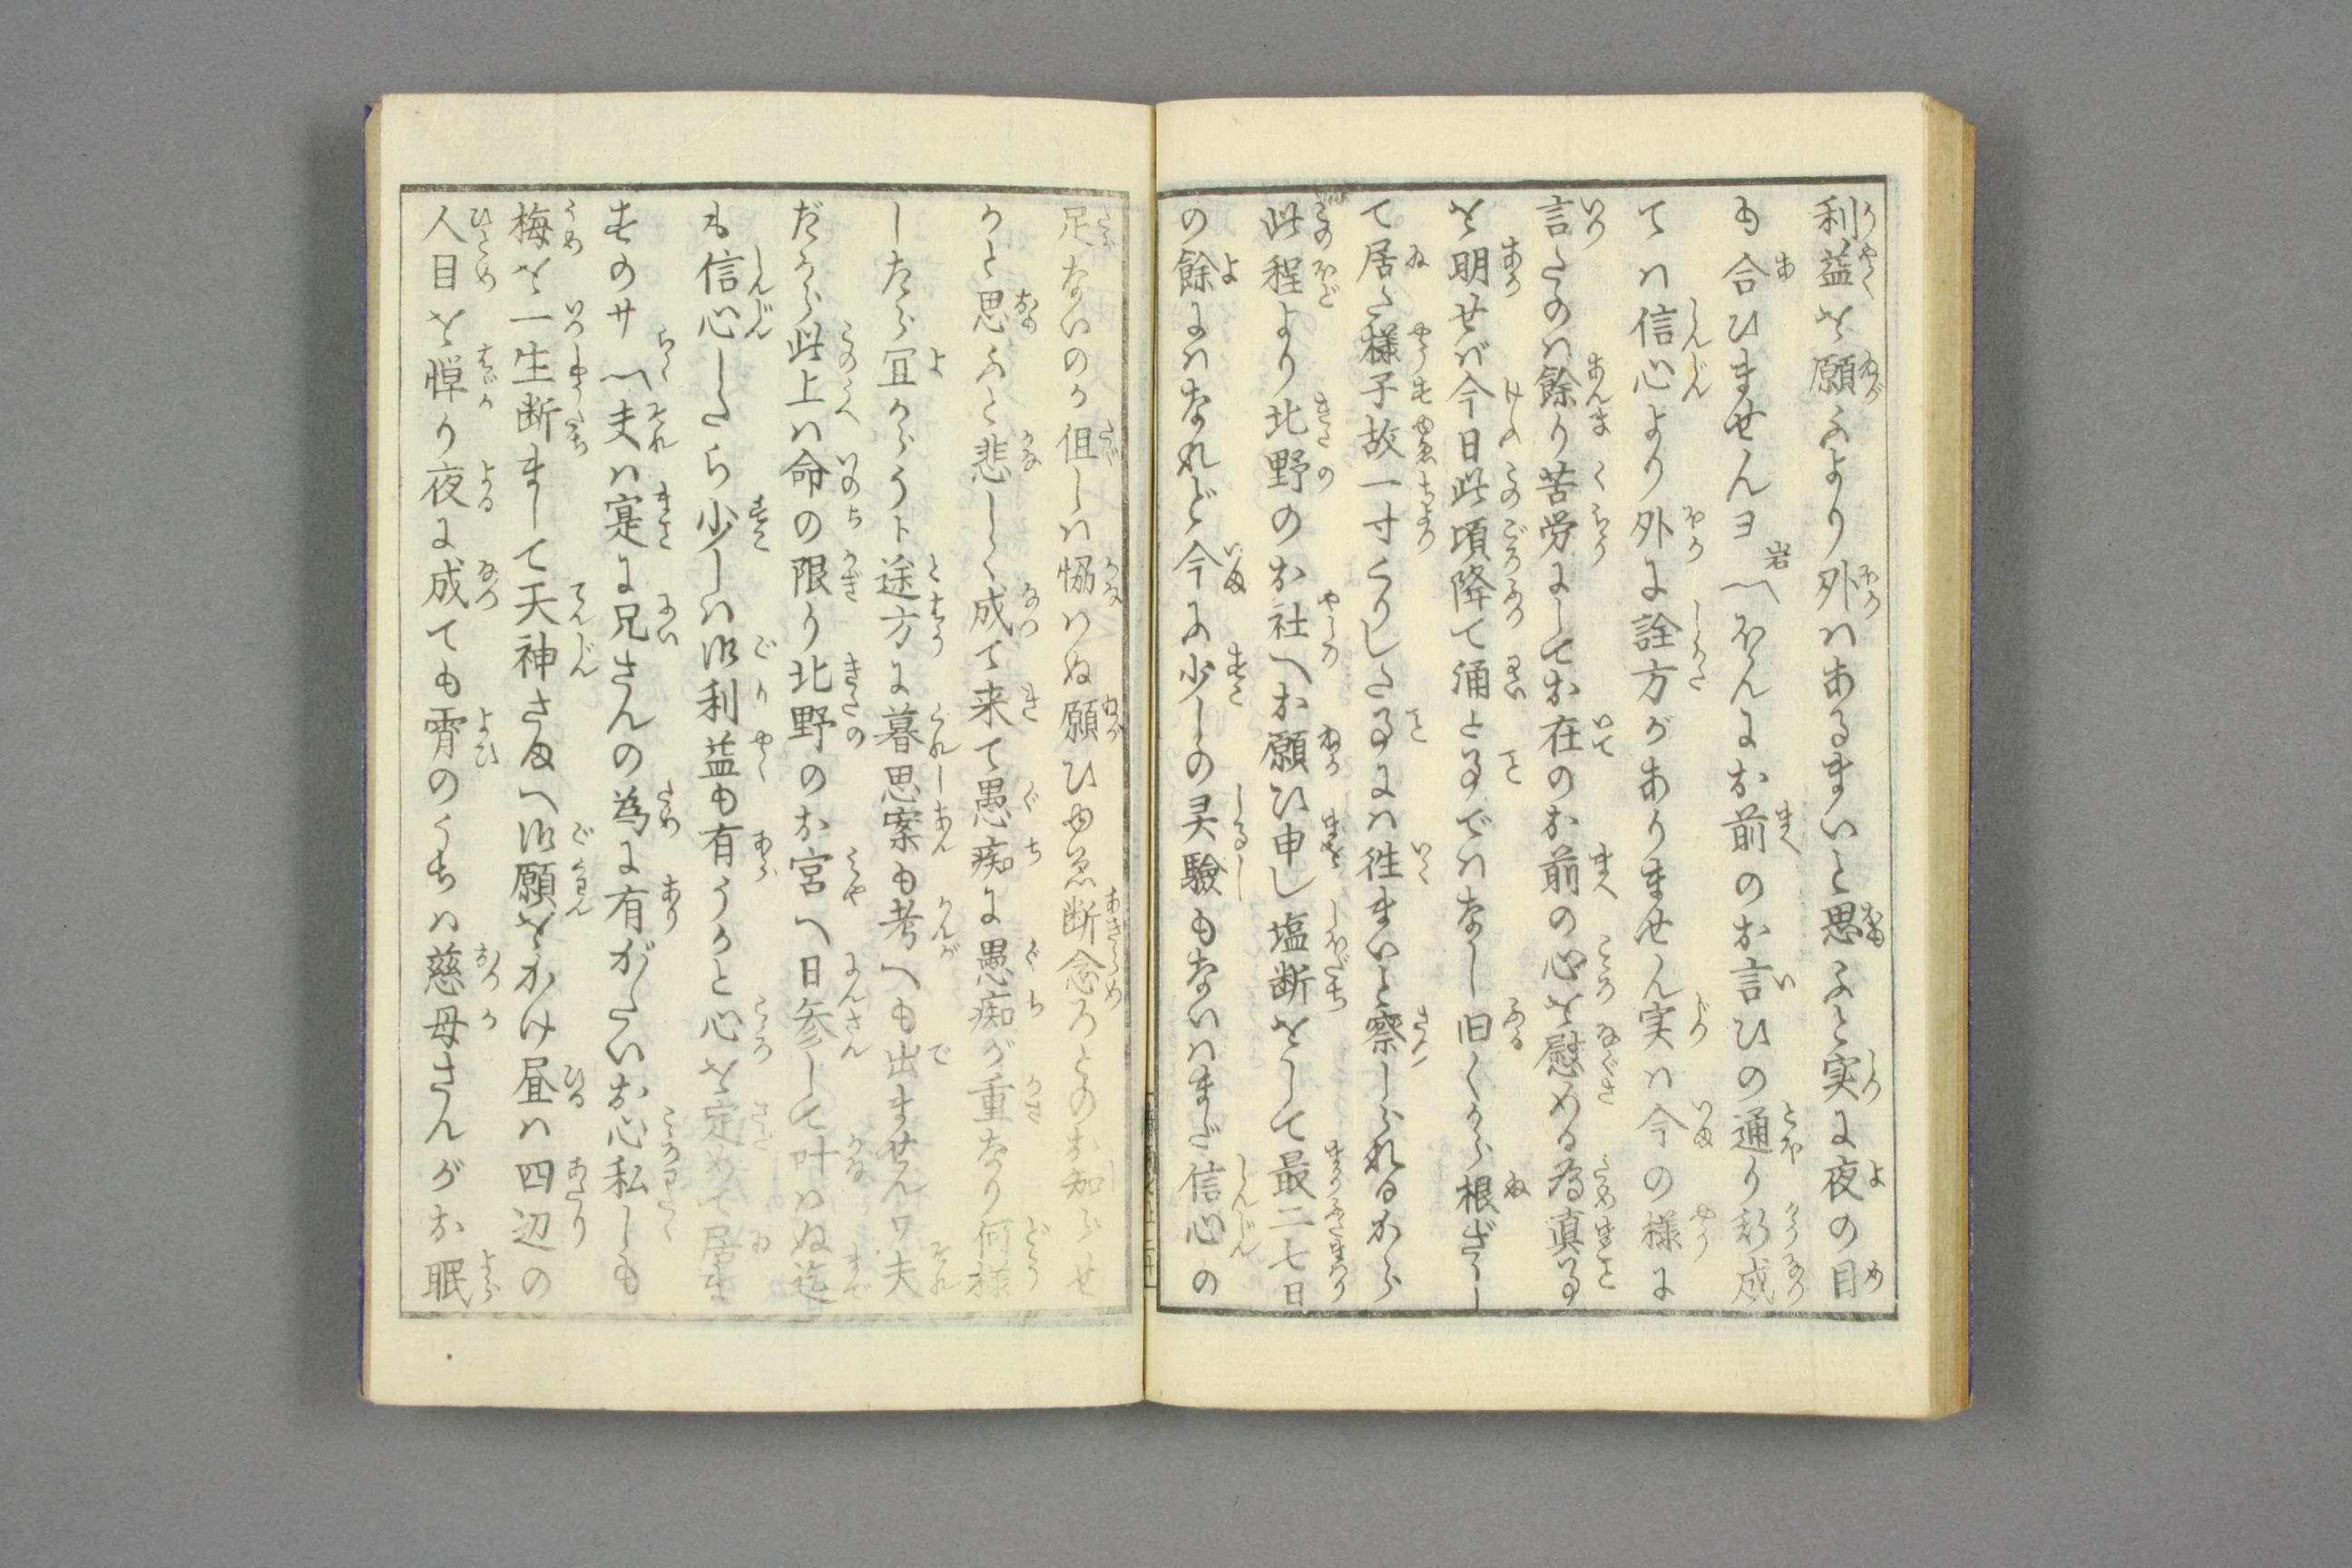 利益を願ふより外ハあるまいと思ふと実に夜の目
も合ひませんヨ 岩「ほんにお前のお言ひの通り斯成
てハ信心より外に詮方がありません実ハ今の様に
言たのハ餘り苦労にしてお在のお前の心を慰める為真事
を明せバ今日此頃降て涌と事でハなし旧くから根ざし
て居た様子故一寸くりした事にハ往まいと察しられるから
此程より北野のお社へお願ひ申し塩断をして最二七日
の餘にハなれど今に少しの灵驗もないハまだ信心の
足ないのか但しハ恊ハぬ願ひゆゑ断念ろとのお知らせ
かと思ふと悲しく成て来て愚痴に愚痴が重なり何様
したら冝からうト途方に暮思案も考へも出ませんヮ夫
だから此上ハ命の限り北野のお宮へ日参して叶ハぬ迄
も信心したら少しハ御利益も有うかと心を定めて居ま
すのサ ちく「夫ハ寔に兄さんの為に有がたいお心私しも
梅を一生断まして天神さまへ御願をかけ昼ハ四辺の
人目を憚り夜に成ても宵のうちハ慈母さんがお眠